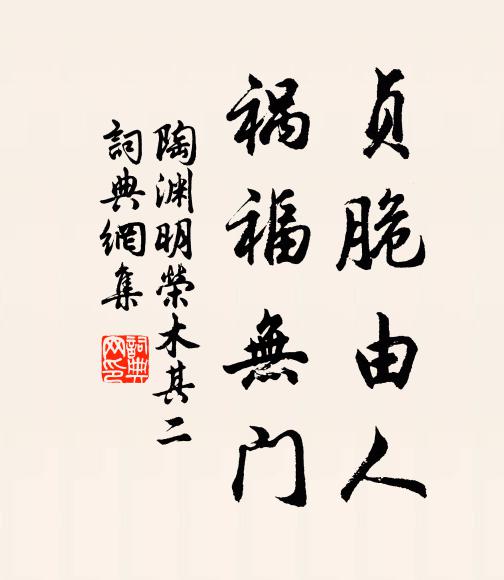 贞脆由人
祸福無门
陶渊明榮木其二
詞典網集
詞典
网印